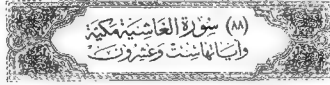 (٨٨) سُورَةُ الْغَاشِيَةِ مَكِّيَّةٌ
وَآيَاتُهَا سِتٌّ وَعِشْرُونَ